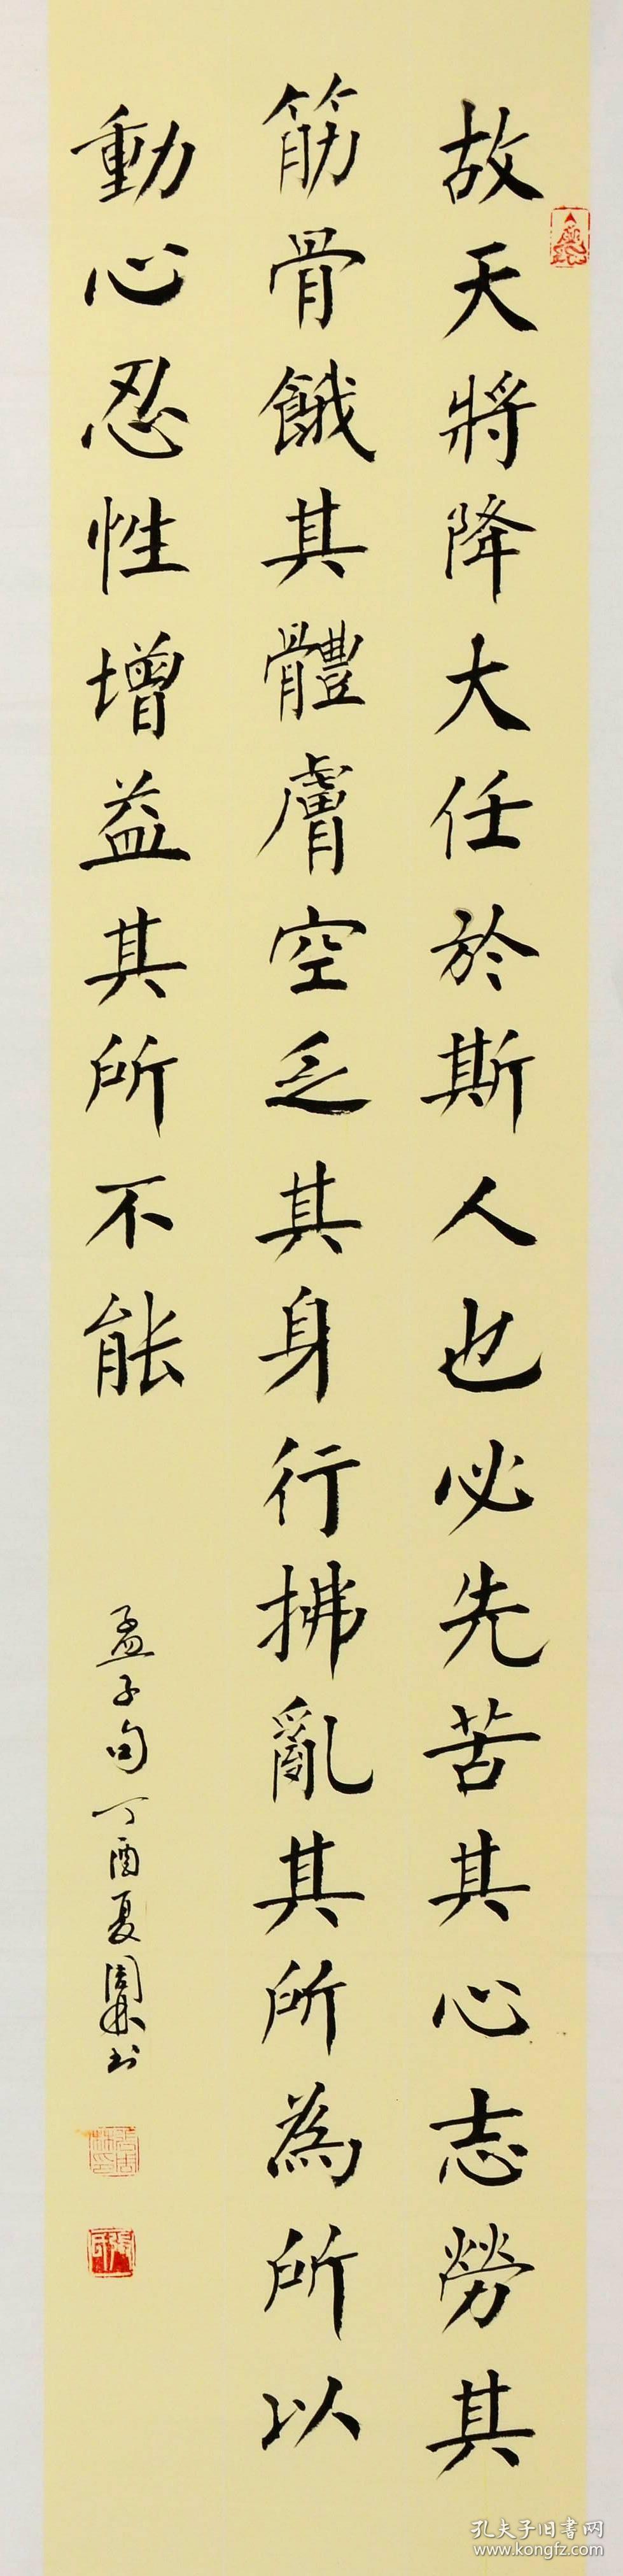 故天將降大任於斯人也必先苦其心志勞其
筋骨餓其體膚空乏其身行拂亂其所為所以
動心忍性增益其所不能
孟子句丁酉夏國林书
孔夫子旧书网
www.kongfz.com